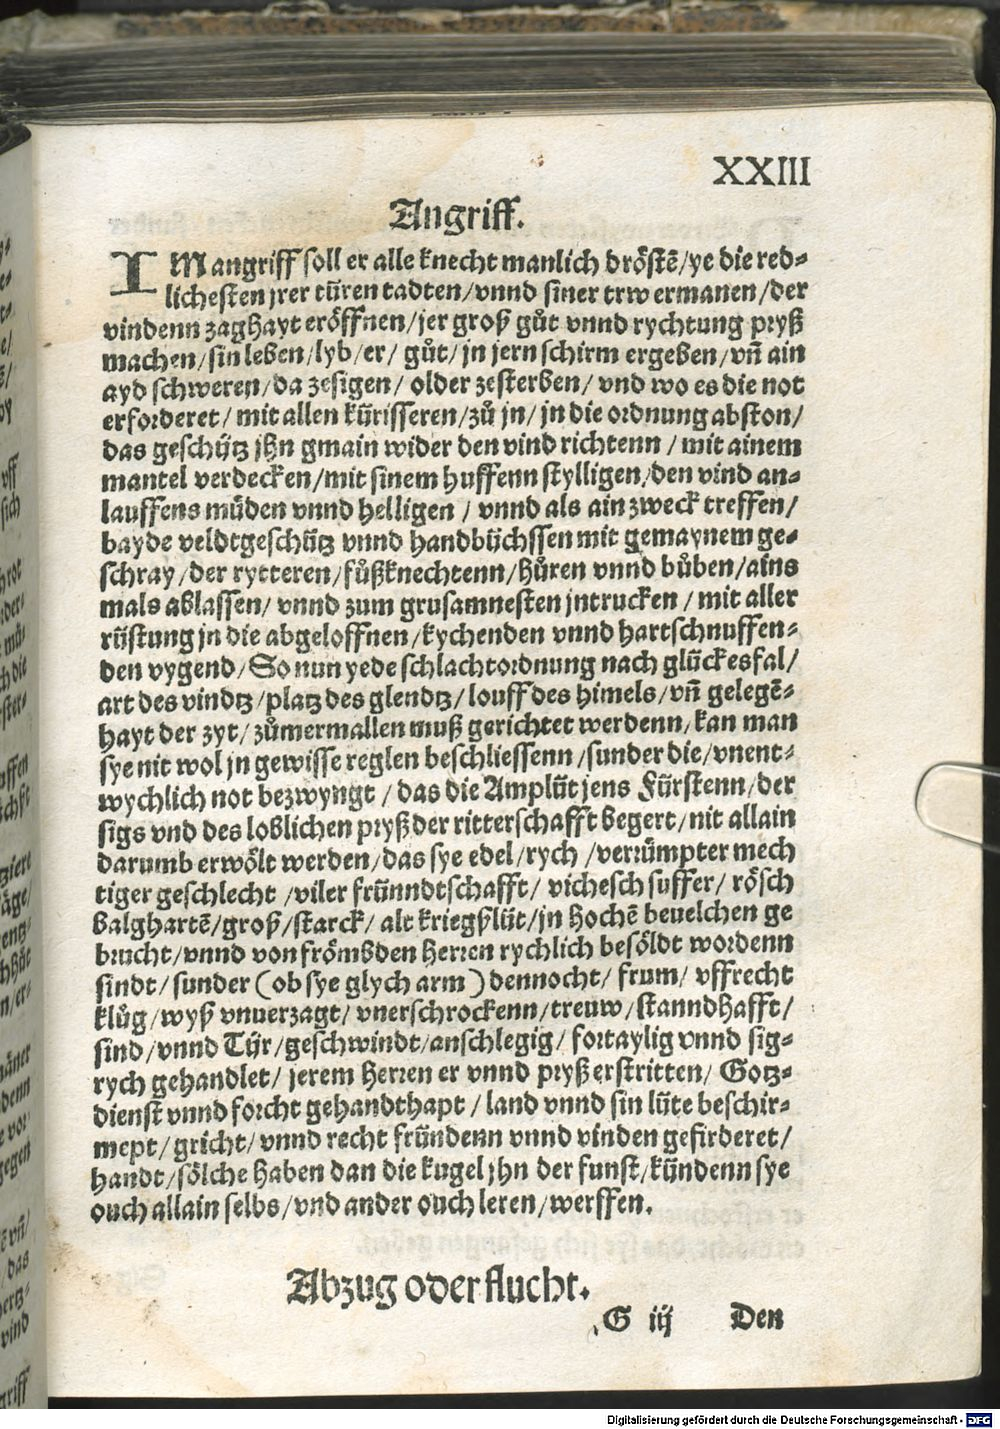 XXIII
Angriff.
IM angriff soll er alle knecht manlich dröstē/ye die red⸗
lichesten jrer türen tadten/vnnd siner trw ermanen/der
vindenn zaghayt eröffnen/jer groß gůt vnnd rychtung pryß
machen/sin leben/lyb/er/ gůt/jn jern schirm ergeben/vñ ain
ayd schweren/da zesigen/ older zesterben/ vnd wo es die not
erforderet/ mit allen kürisseren/zů jn/jn die ordnung abston/
das geschütz jhn gmain wider den vind richtenn / mit ainem
mantel verdecken/mit sinem huffenn stylligen/den vind an⸗
lauffens müden vnnd helligen / vnnd als ain zweck treffen/
bayde veldtgeschütz vnnd handbüchssen mit gemaynem ge⸗
schray/der rytteren/fůßknechtenn/hůren vnnd bůben/ains
mals ablassen/ vnnd zum grusamnesten jntrucken / mit aller
rüstung jn die abgeloffnen/kychenden vnnd hartschnuffen⸗
den vygend/So nun yede schlachtordnung nach glückesfal/
art des vindtz/platz des glendtz/louff des himels/vñ gelegē⸗
hayt der zyt/zůmermallen muß gerichtet werdenn/kan man
sye nit wol jn gewisse reglen beschliessenn/sunder die/vnent⸗
wychlich not bezwyngt / das die Amplüt jens Fürstenn/der
sigs vnd des loblichen pryß der ritterschafft begert/nit allain
darumb erwölt werden/das sye edel/rych /verrümpter mech
tiger geschlecht /viler frünndtschafft/ vichesch suffer/ rösch
balghartē/groß/starck/ alt kriegßlüt/jn hochē beuelchen ge
brucht/vnnd von frömbden Herren rychlich besöldt wordenn
sindt/sunder (ob sye glych arm) dennocht/ frum/ vffrecht
klůg/wyß vnuerzagt/ vnerschrockenn/treuw/standhafft/
sind/vnnd Tür/geschwindt/anschlegig/ fortaylig vnnd sig⸗
rych gehandlet/ jerem Herren er vnnd pryß erstritten/ Gotz⸗
dienst vnnd forcht gehandthapt / land vnnd sin lüte beschir⸗
mept/gricht/vnnd recht fründenn vnnd vinden gefirderet/
handt/sölche haben dan die kugel jhn der funst/kündenn sye
ouch allain selbs/vnd ander ouch leren/werffen.
Abzug oder flucht.
G iij Den
Digitalisierung gefördert durch die Deutsche Forschungsgemeinschaft - DFG